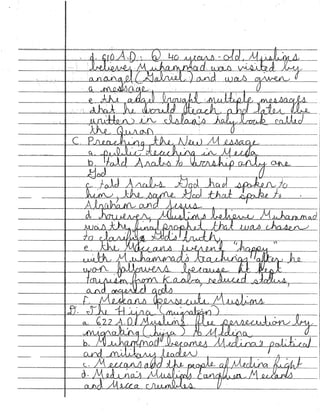 d. 610 A.D.: @ 40 years-old, Muslims
believe Muhammad was visited by
an angel (Gabriel) and was given
a message
e. the angel brought multiple messages
that he would teach and later be
written in Islam's holy book called
the Quran
C. Preaching the New Message
a. public teaching in Mecca
b. told Arabs to worship only one
God
c. told Arabs God had spoken to
him, the same God that spoke to
Abraham and Jesus
d. however, Muslims believe Muhammad
was the final prophet that was chosen
to clarify God's truth
e. the Meccans weren't "happy"
with Muhammad's teachings after he
won followers because it kept
tourism from Kaaba, reduced status,
and angered gods
f. Meccans persecute Muslims
D. The Hijra (migration)
a. 622 A.D. Muslims flee persecution by
migrating (hijra) to Medina
b. Muhammad becomes Medina's political
and military leader
c. Meccans and the people of Medina fight
d. Medina's Muslims conquer Meccans
and Mecca crumbles